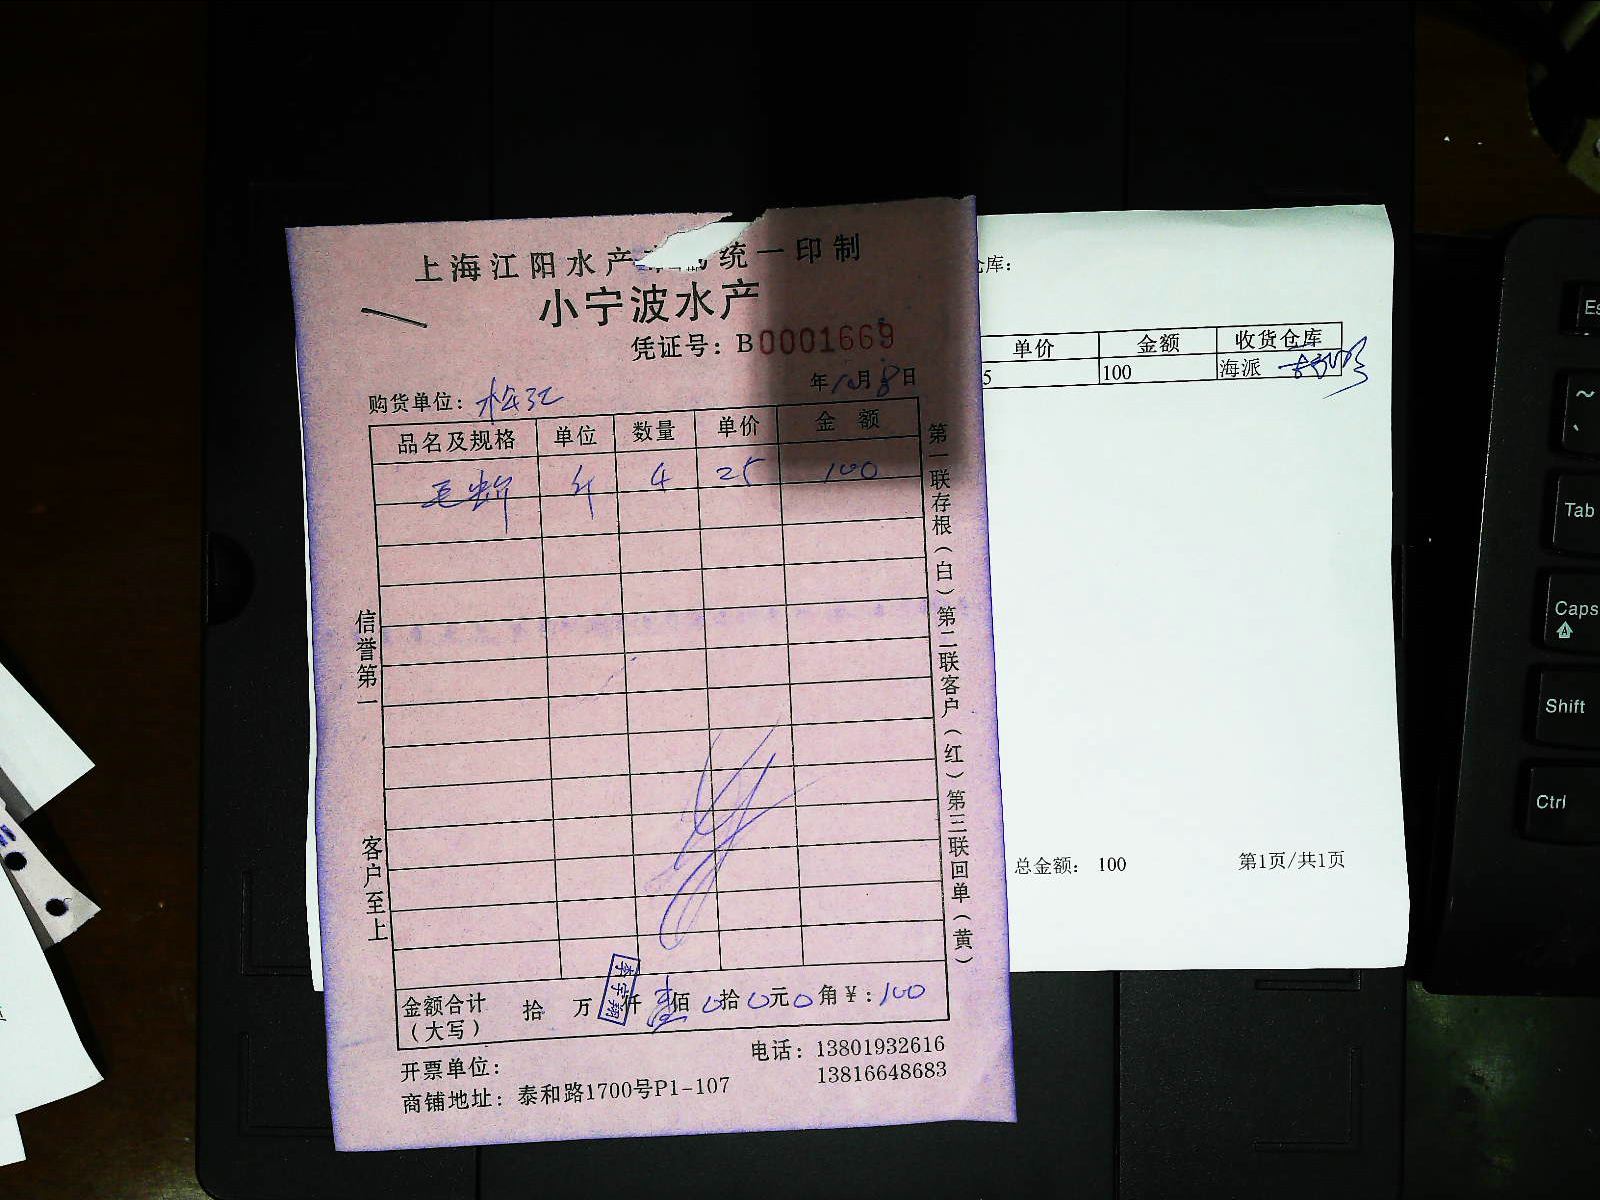 上海江阳水产 统一印制
小宁波水产
凭证号：B0001669
年10月8日
购货单位：梅江
品名及规格 单位 数量 单价 金额
毛蚶 斤 4 25 100
信誉第一
客户至上
第一联存根（白）第二联客户（红）第三联回单（黄）
金额合计（大写） 拾 万 仟 壹佰0拾0元0角￥：100
李宇翔
开票单位：
电话：13801932616
13816648683
商铺地址：泰和路1700号P1-107
仓库：
单价 金额 收货仓库
5 100 海派
总金额：100
第1页/共1页
Es
~
Tab
Caps
A
Shift
Ctrl